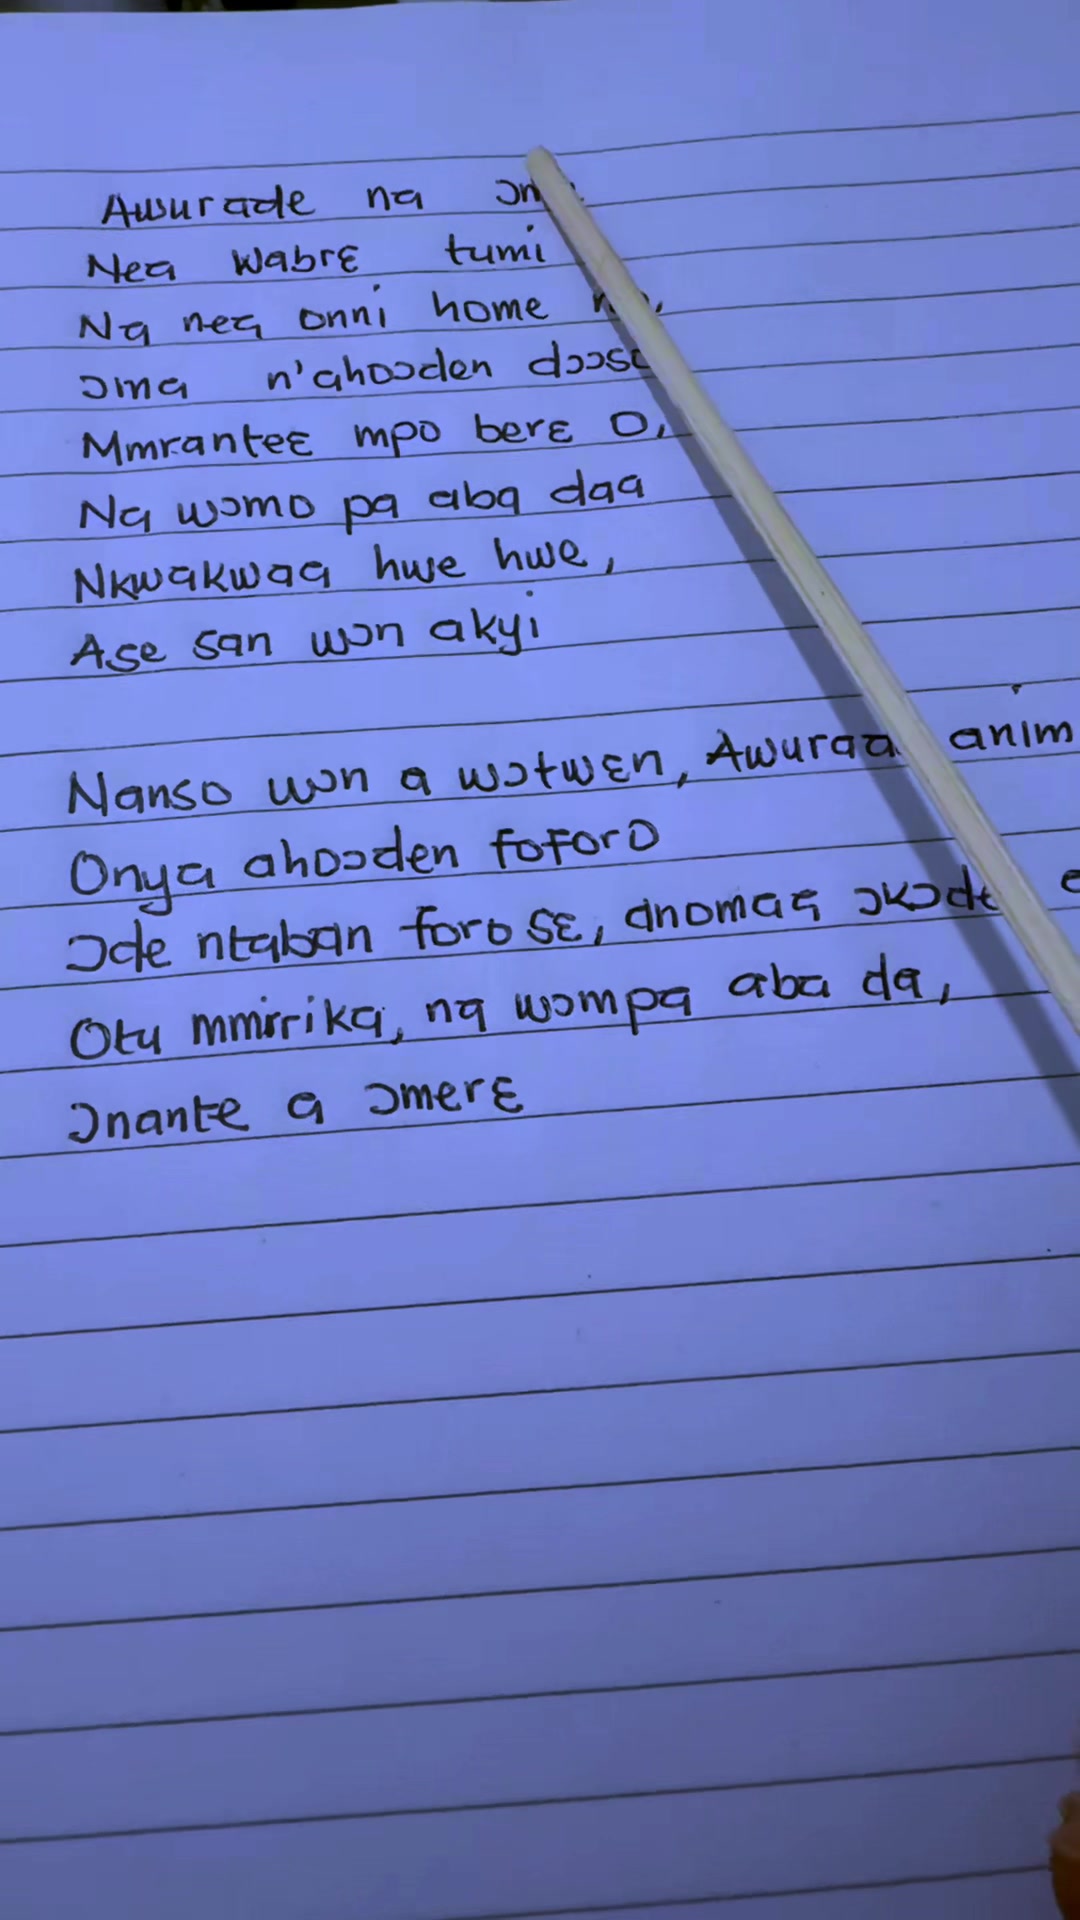 Awurade na
Nea wabrɛ tumi
Na nea onni home
ɔma n'ahoɔden
Mmranteɛ mpo berɛ O,
Na wɔmo pa aba daa
Nkwakwaa hwe hwe,
Ase san wɔn akyi
Nanso wɔn a wɔtwɛn, Awuraa anim
Onya ahoɔden foforo
ɔde ntaban foro sɛ, anomaa
Otu mmirrika, na wɔmpa aba da,
ɔnante a ɔmerɛ